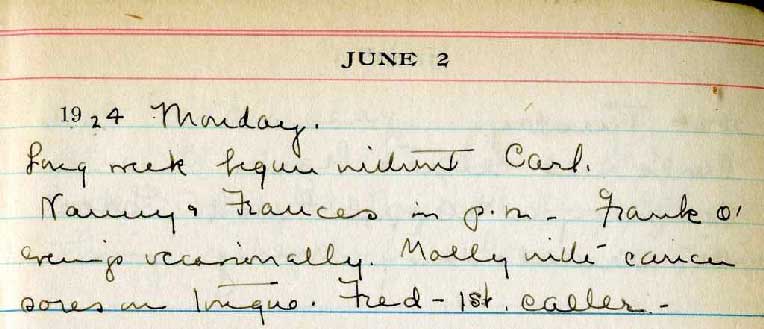 JUNE 2
1924 Monday.
Long week began without Carl.
Nanny & Frances in p.m. - Frank O'
evenings occasionally. Molly with cancer
sores on tongue. Fred - 1st. caller. -